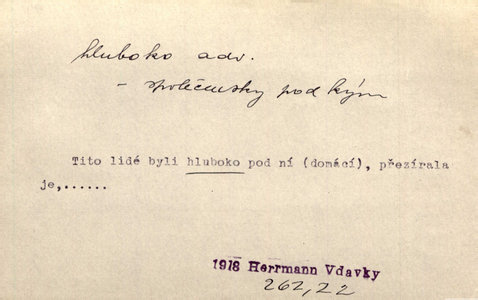 hluboko adv.
– společensky pod kým
Tito lidé byli hluboko pod ní (domácí), přezírala
je,......
1918 Herrmann Vdavky
262,22